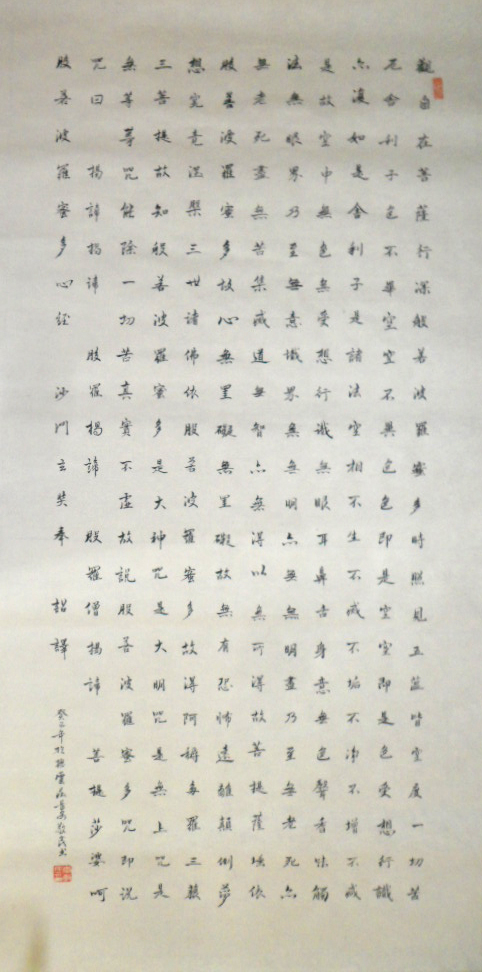 觀自在菩薩行深般若波羅蜜多時照見五蘊皆空度一切苦
厄舍利子色不異空空不異色色即是空空即是色受想行識
亦復如是舍利子是諸法空相不生不滅不垢不淨不增不減
是故空中無色無受想行識無眼耳鼻舌身意無色聲香味觸
法無眼界乃至無意識界無無明亦無無明盡乃至無老死亦
無老死盡無苦集滅道無智亦無得以無所得故菩提薩埵依
般若波羅蜜多故心無罣礙無罣礙故無有恐怖遠離顛倒夢
想究竟涅槃三世諸佛依般若波羅蜜多故得阿耨多羅三藐
三菩提故知般若波羅蜜多是大神咒是大明咒是無上咒是
無等等咒能除一切苦真實不虛故說般若波羅蜜多咒即說
咒曰 揭諦揭諦 般羅揭諦 般羅僧揭諦 菩提莎婆呵
般若波羅蜜多心經 沙門玄奘奉 詔譯
癸巳年於